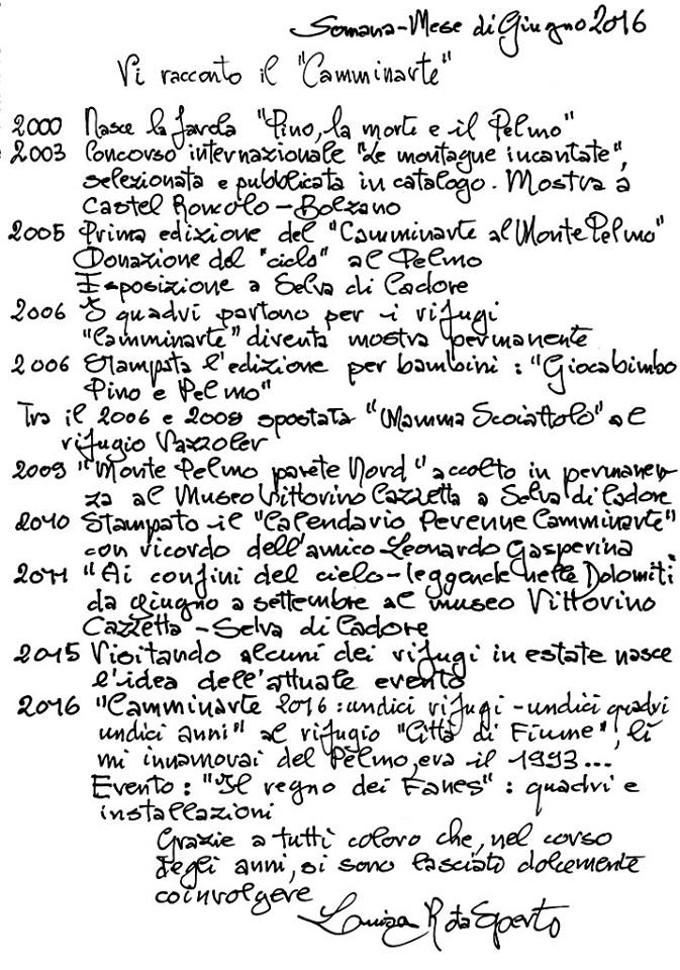 Somana-Mese di Giugno 2016
Vi racconto il "Camminarte"
2000 Nasce la favola "Pino, la morte e il Pelmo"
2003 Concorso internazionale "Le montagne incantate",
selezionata e pubblicata in catalogo. Mostra a
Castel Roncolo - Bolzano
2005 Prima edizione del "Camminarte al Monte Pelmo"
Donazione del "ciclo" al Pelmo
Esposizione a Selva di Cadore
2006 I quadri partono per i rifugi
"Camminarte" diventa mostra permanente
2006 Stampata l'edizione per bambini: "Giocabimbo
Pino e Pelmo"
Tra il 2006 e 2009 spostata "Mamma Scoiattolo" al
rifugio Vazzoler
2009 "Monte Pelmo parete Nord" accolto in permanen-
za al Museo Vittorino Cazzetta a Selva di Cadore
2010 Stampato il "Calendario Perenne Camminarte"
con ricordo dell'amico Leonardo Gasperina
2011 "Ai confini del cielo - leggende nelle Dolomiti
da giugno a settembre al museo Vittorino
Cazzetta - Selva di Cadore
2015 Visitando alcuni dei rifugi in estate nasce
l'idea dell'attuale evento
2016 "Camminarte 2016: undici rifugi - undici quadri
undici anni" al rifugio "Città di Fiume", lì
mi innamorai del Pelmo, era il 1993...
Evento: "Il regno dei Fanes": quadri e
installazioni
Grazie a tutti coloro che, nel corso
degli anni, si sono lasciati dolcemente
coinvolgere
Luisa Rota Sperto